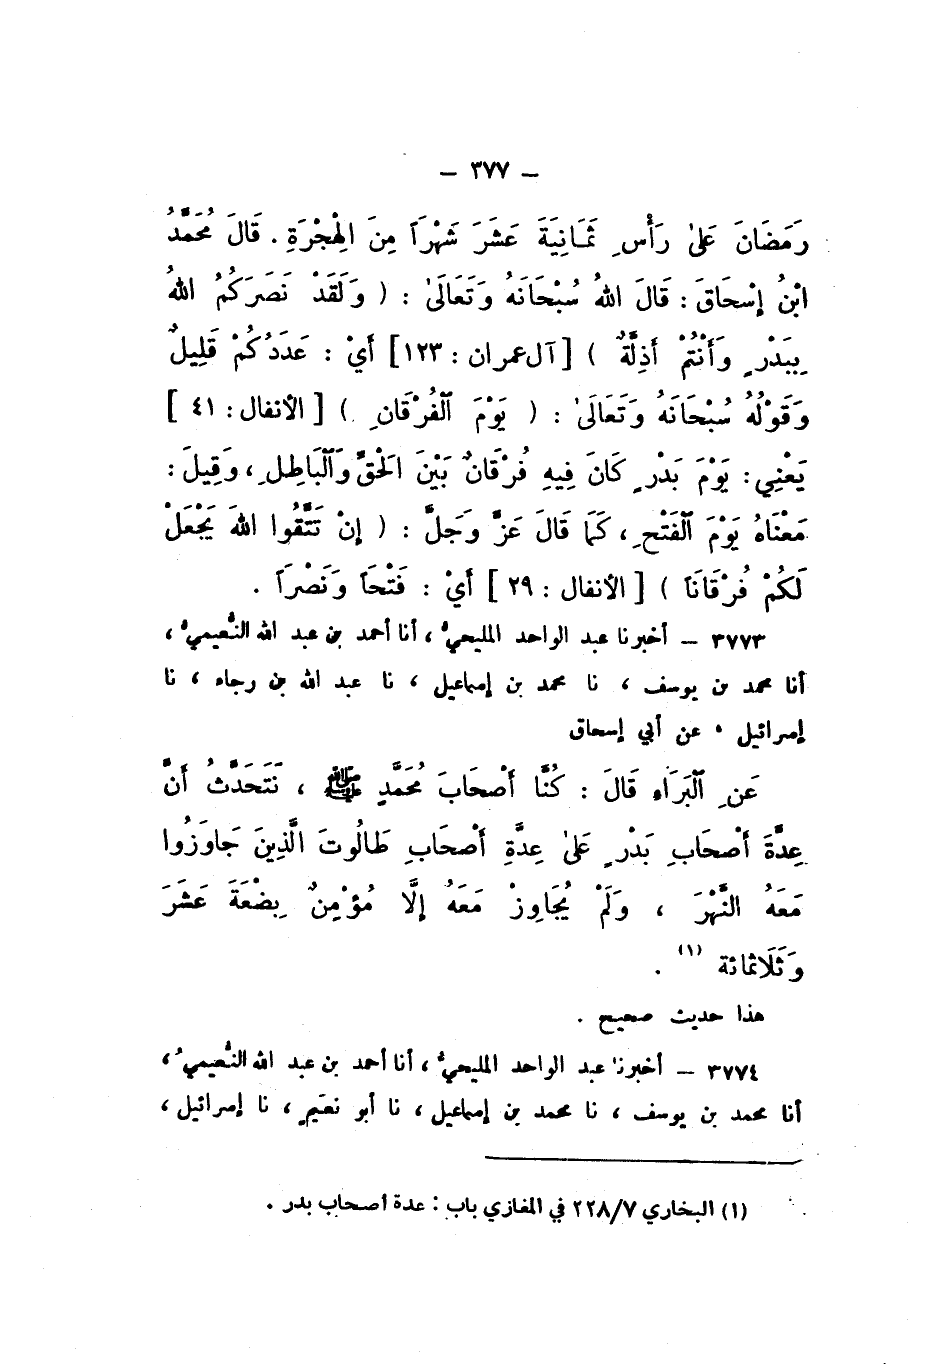 — ٣٧٧ —
رَمَضَانَ عَلىٰ رَأْسِ ثَمَانِيَةَ عَشَرَ شَهْرَاً مِنَ الهِجْرَةِ . قَالَ مُحَمَّدُ
ابْنُ إِسْحَاقَ : قَالَ اللهُ سُبْحَانَهُ وَتَعَالَىٰ : ( وَلَقَدْ نَصَرَكُمُ اللهُ
بِبَدْرٍ وَأَنْتُمْ أَذِلَّةٌ ) [ آل عمران : ١٢٣ ] أَيْ : عَدَدُكُمْ قَلِيلٌ
وَقَوْلُهُ سُبْحَانَهُ وَتَعَالَىٰ : ( يَوْمَ الْفُرْقَانِ ) [ الأنفال : ٤١ ]
يَعْنِي : يَوْمَ بَدْرٍ كَانَ فِيهِ فُرْقَانٌ بَيْنَ الْحَقِّ وَالْبَاطِلِ ، وَقِيلَ :
مَعْنَاهُ يَوْمَ الْفَتْحِ ، كَمَا قَالَ عَزَّ وَجَلَّ : ( إِنْ تَتَّقُوا اللهَ يَجْعَلْ
لَكُمْ فُرْقَانَاً ) [ الأنفال : ٢٩ ] أَيْ : فَتْحَاً وَنَصْرَاً .
٣٧٧٣ — أخبرنا عبد الواحد المليحيُّ ، أنا أحمد بن عبد الله النُّعيميُّ ،
أنا محمد بن يوسف ، نا محمد بن إسماعيل ، نا عبد الله بن رجاء ، نا
إسرائيل ، عن أبي إسحاق
عَنِ الْبَرَاءِ قَالَ : كُنَّا أَصْحَابَ مُحَمَّدٍ ﷺ ، نَتَحَدَّثُ أَنَّ
عِدَّةَ أَصْحَابِ بَدْرٍ عَلىٰ عِدَّةِ أَصْحَابِ طَالُوتَ الَّذِينَ جَاوَزُوا
مَعَهُ النَّهْرَ ، وَلَمْ يُجَاوِزْ مَعَهُ إِلَّا مُؤْمِنٌ بِضْعَةَ عَشَرَ
وَثَلَاثَمَائة (١) .
هذا حديث صحيح .
٣٧٧٤ — أخبرنا عبد الواحد المليحيُّ ، أنا أحمد بن عبد الله النُّعيميُّ ،
أنا محمد بن يوسف ، نا محمد بن إسماعيل ، نا أبو نعَيم ، نا إسرائيل ،
(١) البخاري ٢٢٨/٧ في المغازي باب : عدة أصحاب بدر .